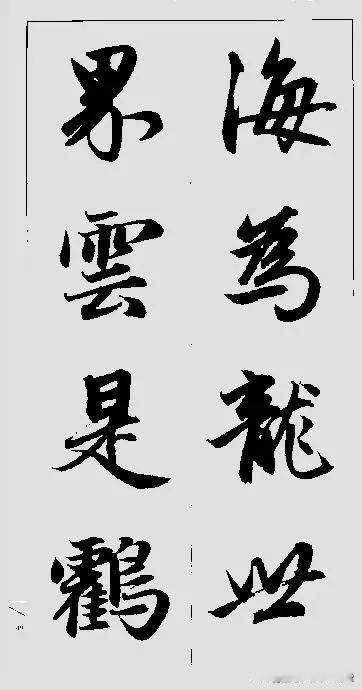 海為龍世
界雲是鶴